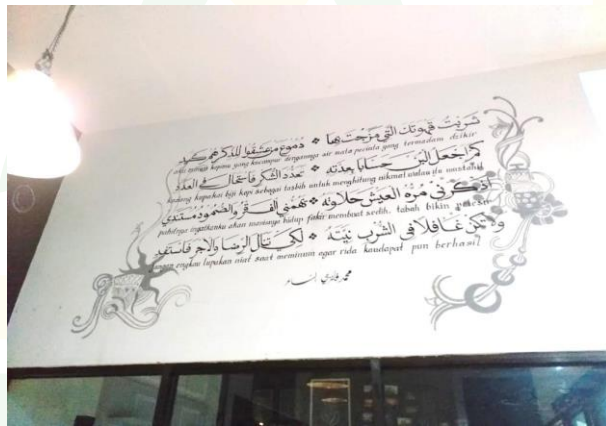 شربت قهوتك التي مزجت بها ❖ دموع من عشقوا للذكر هم
yang bercampur dengannya air mata pecinta yang terendam dzikir
جعل البن حسابا بعدته ❖ تعدد الشكر فاستمال في العدد
kadang kupakai biji kopi sebagai tasbih untuk menghitung nikmat walau itu mustahil
اذكرني مرة العيش حلاوته ❖ فهمني الفقر والصمود مستندي
pahitnya ingatkanku akan manisnya hidup fakir membuat sedih, tabah bikin
ولا تكن غافلا في الشرب نيته ❖ لكي تنال الرضا والأجر فاستفد
jangan engkau lupakan niat saat meminum agar rida kaudapat pun berhasil
محمد